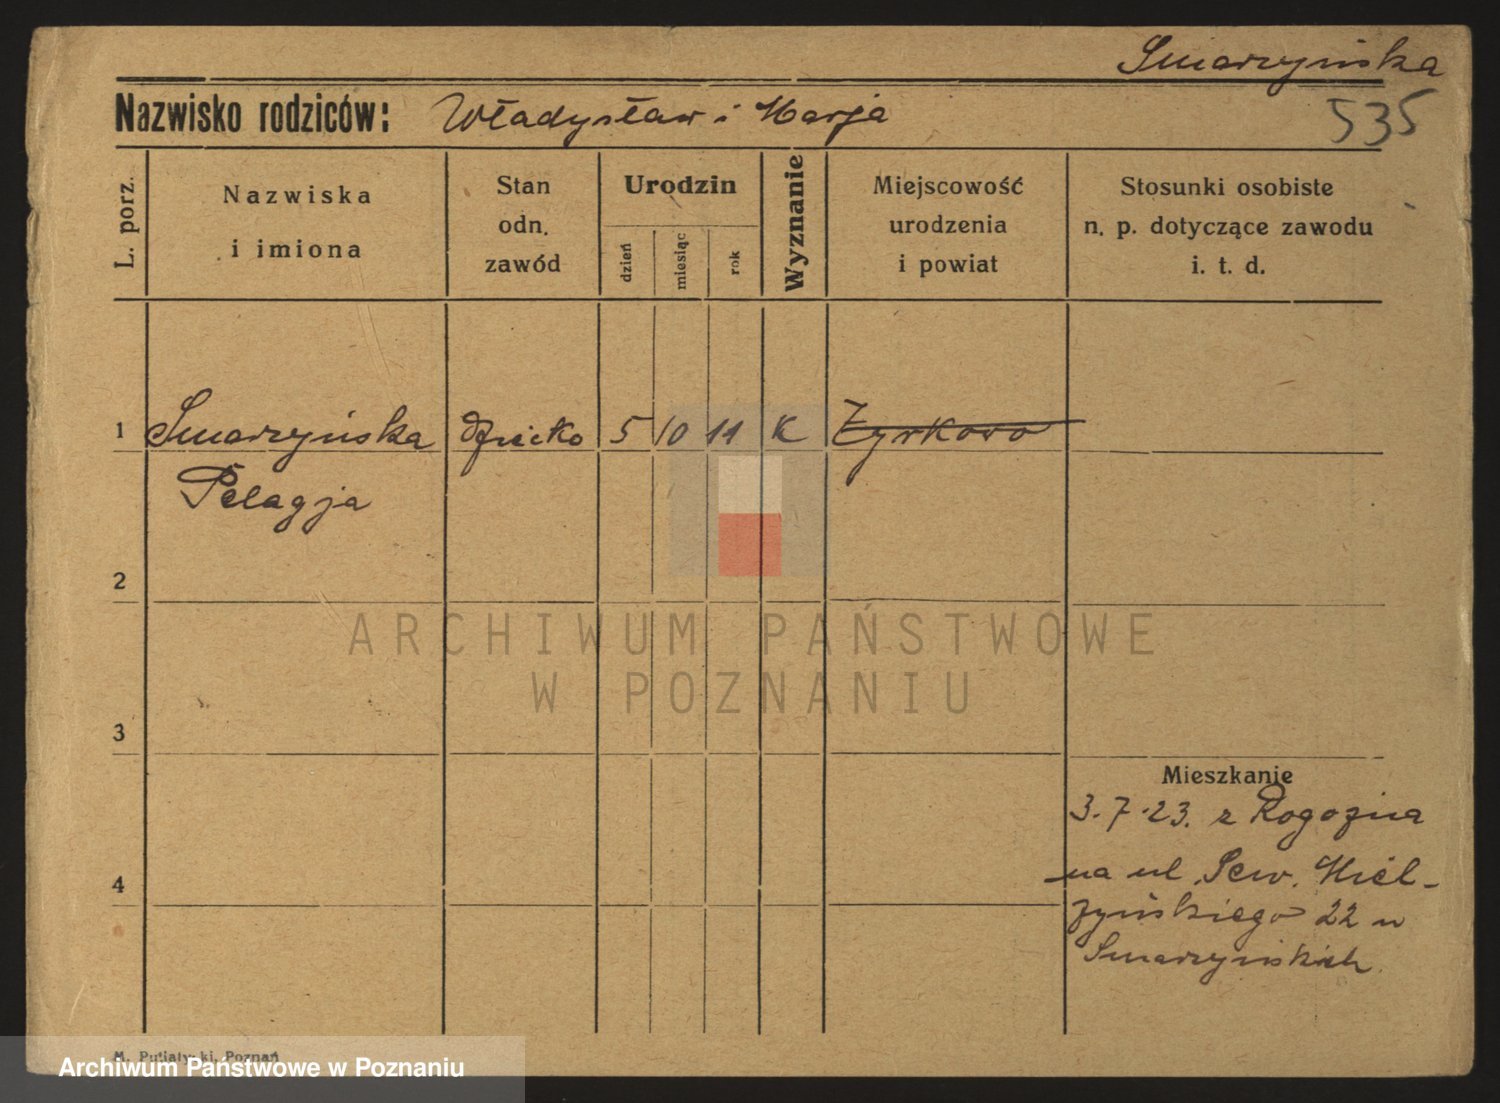 Smarzyńska
Nazwisko rodziców: Władysław i Marja
535
L. porz.
Nazwiska
i imiona
Stan
odn.
zawód
Urodzin
dzień
miesiąc
rok
Wyznanie
Miejscowość
urodzenia
i powiat
Stosunki osobiste
n. p. dotyczące zawodu
i. t. d.
1 Smarzyńska dziecko 5 10 11 K Żyrkowo
Pelagja
2
ARCHIWUM PAŃSTWOWE
W POZNANIU
3
Mieszkanie
3.7.23. z Rogoźna
4
na ul. Sew. Miel-
żyńskiego 22 u
Smarzyńskich
M. Putiatycki, Poznań
Archiwum Państwowe w Poznaniu